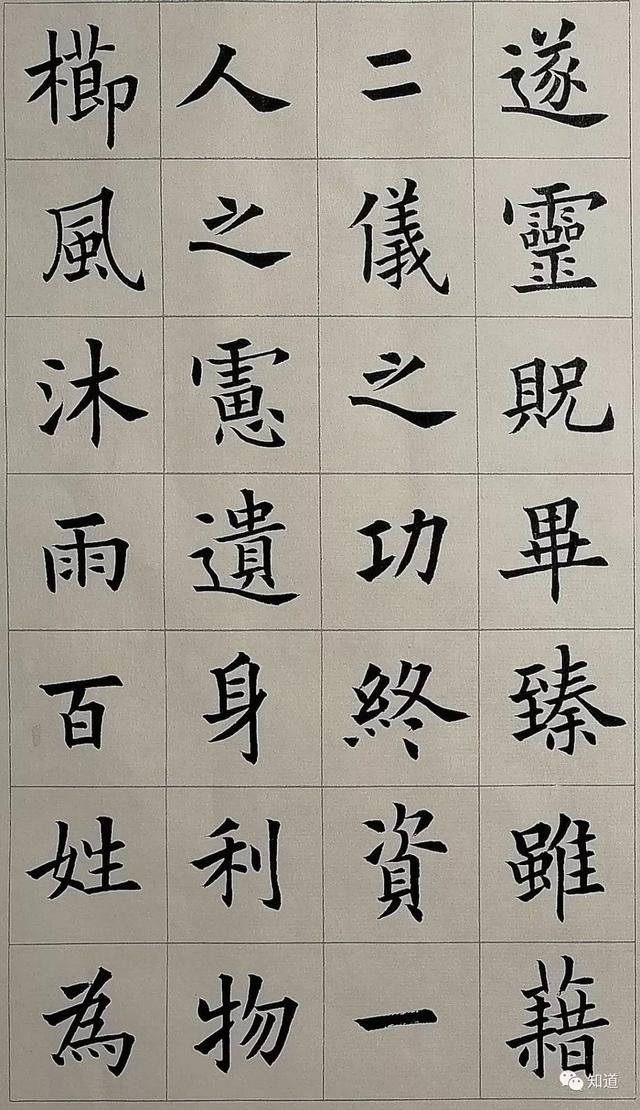 遂靈貺畢臻雖藉
二儀之功終資一
人之慮遺身利物
櫛風沐雨百姓為
知道